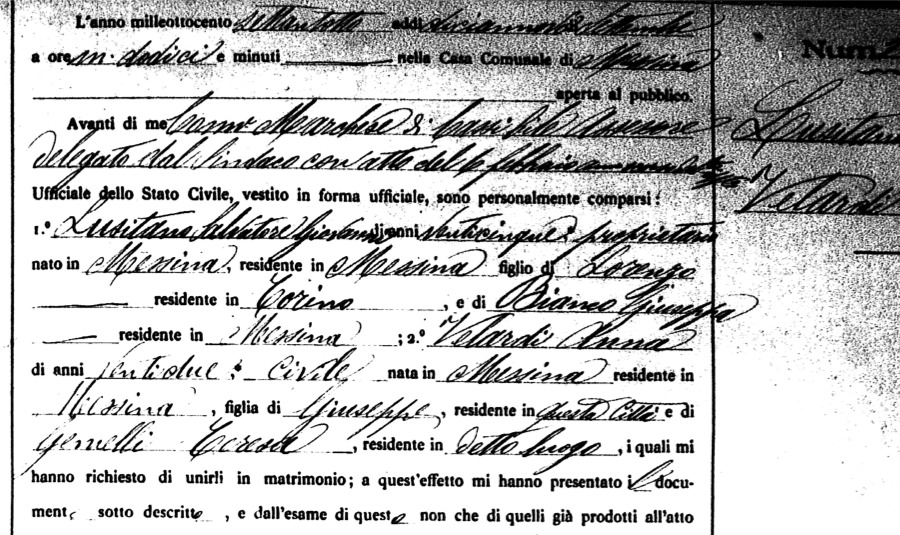 L'anno milleottocento settantotto addì diciannove Settembre
a ore in dodici e minuti nella Casa Comunale di Messina
aperta al pubblico.
Num
Avanti di me Marchese di Assessore
delegato dal Sindaco con atto del febbraio
Ufficiale dello Stato Civile, vestito in forma ufficiale, sono personalmente comparsi:
1.° Lusitano Salvatore Giovanni di anni venticinque, proprietario
nato in Messina, residente in Messina figlio di Lorenzo
residente in Torino, e di Bianco Giuseppa
residente in Messina; 2.° Velardi Anna
di anni ventidue, civile, nata in Messina residente in
Messina, figlia di Giuseppe, residente in questa Città e di
Gemelli Teresa, residente in detto luogo, i quali mi
hanno richiesto di unirli in matrimonio; a quest'effetto mi hanno presentato i docu-
mente sotto descritto, e dall'esame di queste non che di quelli già prodotti all'atto
Lusitano
Velardi